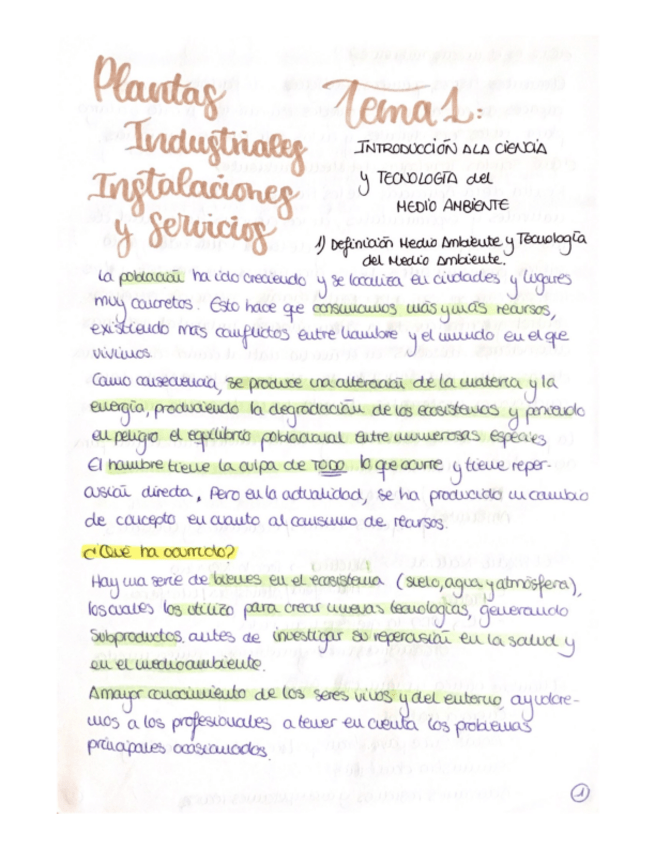 Plantas
Industriales
Instalaciones
y Servicios
Tema 1:
INTRODUCCIÓN A LA CIENCIA
y TECNOLOGÍA del
MEDIO AMBIENTE
1) Definición Medio Ambiente y Tecnología
del Medio Ambiente.
La población ha ido creciendo y se localiza en ciudades y lugares
muy concretos. Esto hace que consumamos más y más recursos,
existiendo más conflictos entre hombre y el mundo en el que
vivimos.
Como consecuencia, se produce una alteración de la materia y la
energía, produciendo la degradación de los ecosistemas y poniendo
en peligro el equilibrio poblacional entre numerosas especies.
El hombre tiene la culpa de TODO lo que ocurre y tiene reper-
cusión directa, Pero en la actualidad, se ha producido un cambio
de concepto en cuanto al consumo de recursos.
¿Qué ha ocurrido?
Hay una serie de bienes en el ecosistema (suelo, agua y atmósfera),
los cuales los utilizo para crear nuevas tecnologías, generando
subproductos, antes de investigar su repercusión en la salud y
en el medio ambiente.
A mayor conocimiento de los seres vivos y del entorno, ayudare-
mos a los profesionales a tener en cuenta los problemas
principales ocasionados.
1